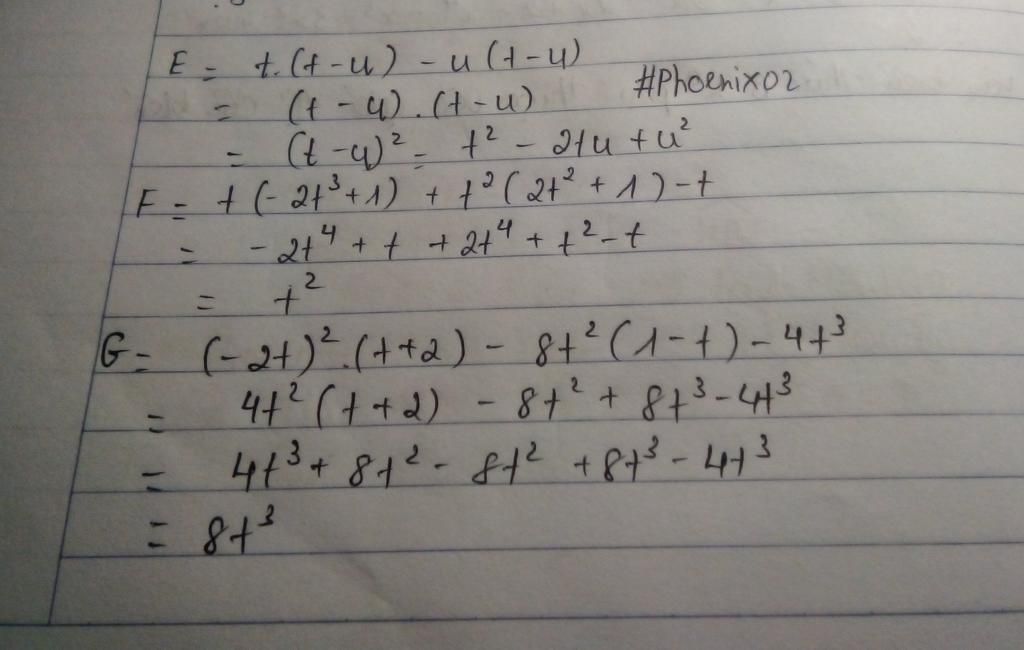 E = t.(t-u) - u(t-u)
#Phoenix02
= (t-u).(t-u)
= (t-u)² = t² - 2tu + u²
F = t(-2t³+1) + t²(2t²+1)-t
= -2t⁴ + t + 2t⁴ + t² - t
= t²
G = (-2t)².(t+2) - 8t²(1-t) - 4t³
= 4t²(t+2) - 8t² + 8t³ - 4t³
= 4t³ + 8t² - 8t² + 8t³ - 4t³
= 8t³